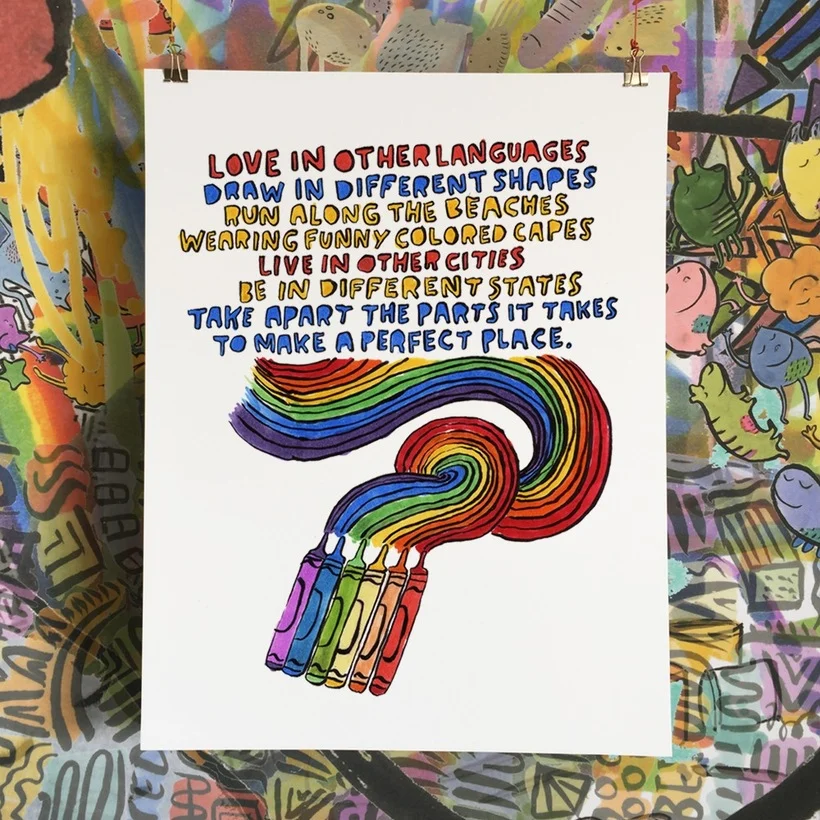 LOVE IN OTHER LANGUAGES
DRAW IN DIFFERENT SHAPES
RUN ALONG THE BEACHES
WEARING FUNNY COLORED CAPES
LIVE IN OTHER CITIES
BE IN DIFFERENT STATES
TAKE APART THE PARTS IT TAKES
TO MAKE A PERFECT PLACE.